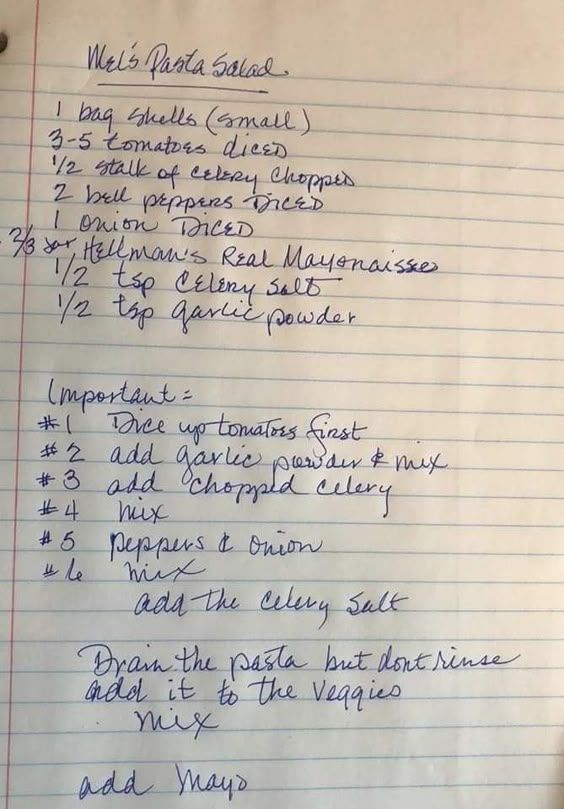 Mel's Pasta Salad
1 bag shells (small)
3-5 tomatoes diced
1/2 stalk of celery chopped
2 bell peppers Diced
1 onion Diced
2/3 jar Hellman's Real Mayonaisse
1/2 tsp Celery Salt
1/2 tsp garlic powder
Important =
#1 Dice up tomatoes first
#2 add garlic powder & mix
#3 add chopped celery
#4 mix
#5 peppers & onion
#6 mix
add the celery salt
Drain the pasta but dont rinse
add it to the veggies
mix
add Mayo